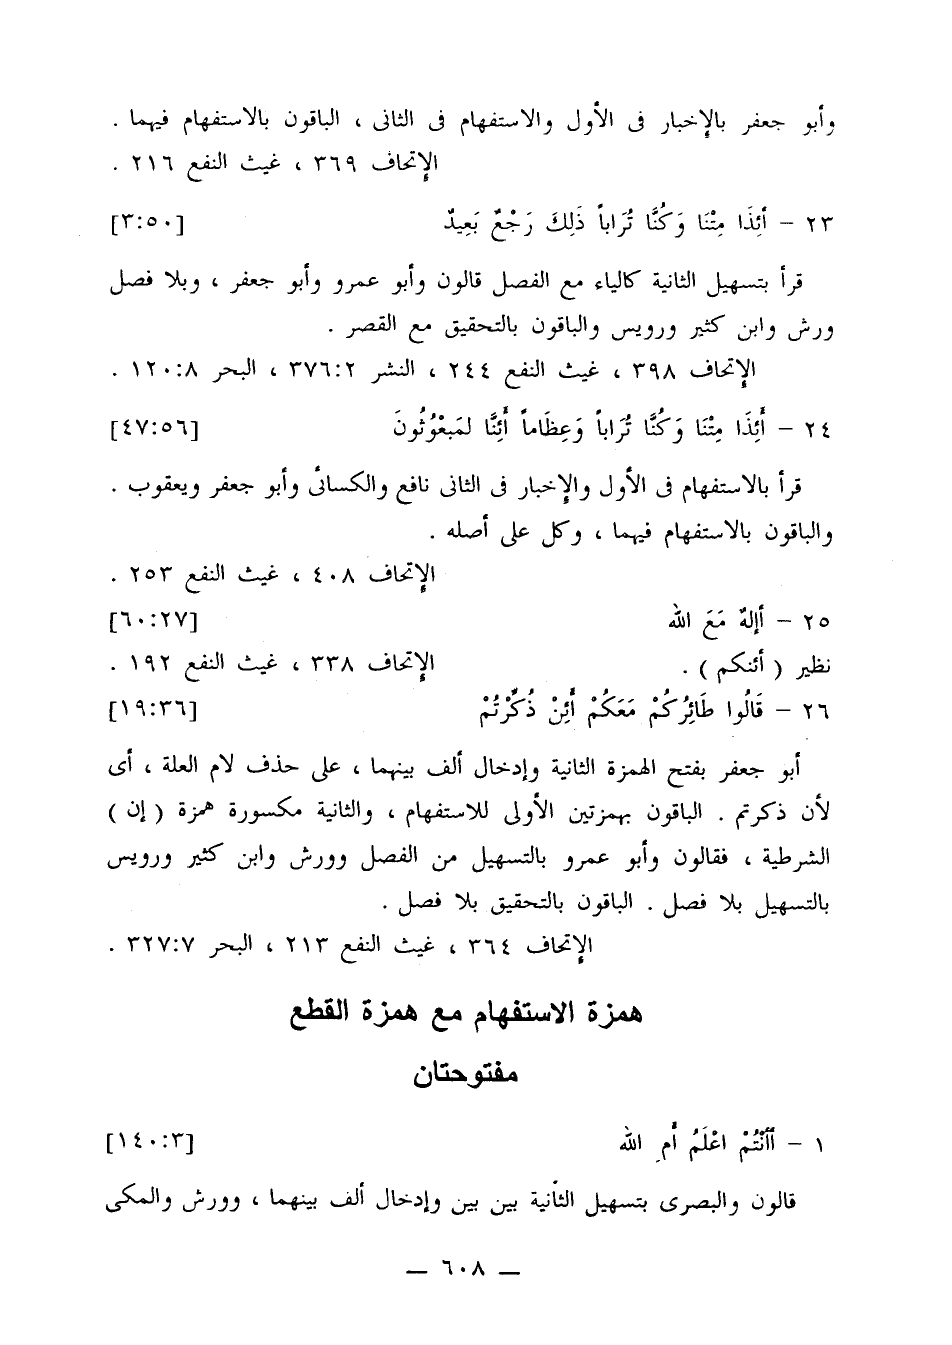 وأبو جعفر بالإخبار فى الأول والاستفهام فى الثانى ، الباقون بالاستفهام فيهما .
الإتحاف ٣٦٩ ، غيث النفع ٢١٦ .
٢٣ – أئِذَا مِتْنَا وَكُنَّا تُرَاباً ذَلِكَ رَجْعٌ بَعِيدٌ [٣:٥٠]
قرأ بتسهيل الثانية كالياء مع الفصل قالون وأبو عمرو وأبو جعفر ، وبلا فصل
ورش وابن كثير ورويس والباقون بالتحقيق مع القصر .
الإتحاف ٣٩٨ ، غيث النفع ٢٤٤ ، النشر ٣٧٦:٢ ، البحر ١٢٠:٨ .
٢٤ – أَئِذَا مِتْنَا وَكُنَّا تُرَاباً وَعِظَاماً أَئِنَّا لمَبعْوُثُونَ [٤٧:٥٦]
قرأ بالاستفهام فى الأول والإخبار فى الثانى نافع والكسائى وأبو جعفر ويعقوب .
والباقون بالاستفهام فيهما ، وكل على أصله .
الإتحاف ٤٠٨ ، غيث النفع ٢٥٣ .
٢٥ – أإلهٌ مَعَ الله [٦٠:٢٧]
نظير ( أئنكم ) . الإتحاف ٣٣٨ ، غيث النفع ١٩٢ .
٢٦ – قَالُوا طَائِرُكُمْ مَعَكُمْ أَئِنْ ذُكِّرْتُمْ [١٩:٣٦]
أبو جعفر بفتح الهمزة الثانية وإدخال ألف بينهما ، على حذف لام العلة ، أى
لأن ذكرتم . الباقون بهمزتين الأولى للاستفهام ، والثانية مكسورة همزة ( إن )
الشرطية ، فقالون وأبو عمرو بالتسهيل من الفصل وورش وابن كثير ورويس
بالتسهيل بلا فصل . الباقون بالتحقيق بلا فصل .
الإتحاف ٣٦٤ ، غيث النفع ٢١٣ ، البحر ٣٢٧:٧ .
همزة الاستفهام مع همزة القطع
مفتوحتان
١ – أأَنْتُمْ اعْلَمُ أَمِ الله [١٤٠:٣]
قالون والبصرى بتسهيل الثانية بين بين وإدخال ألف بينهما ، وورش والمكى
— ٦٠٨ —